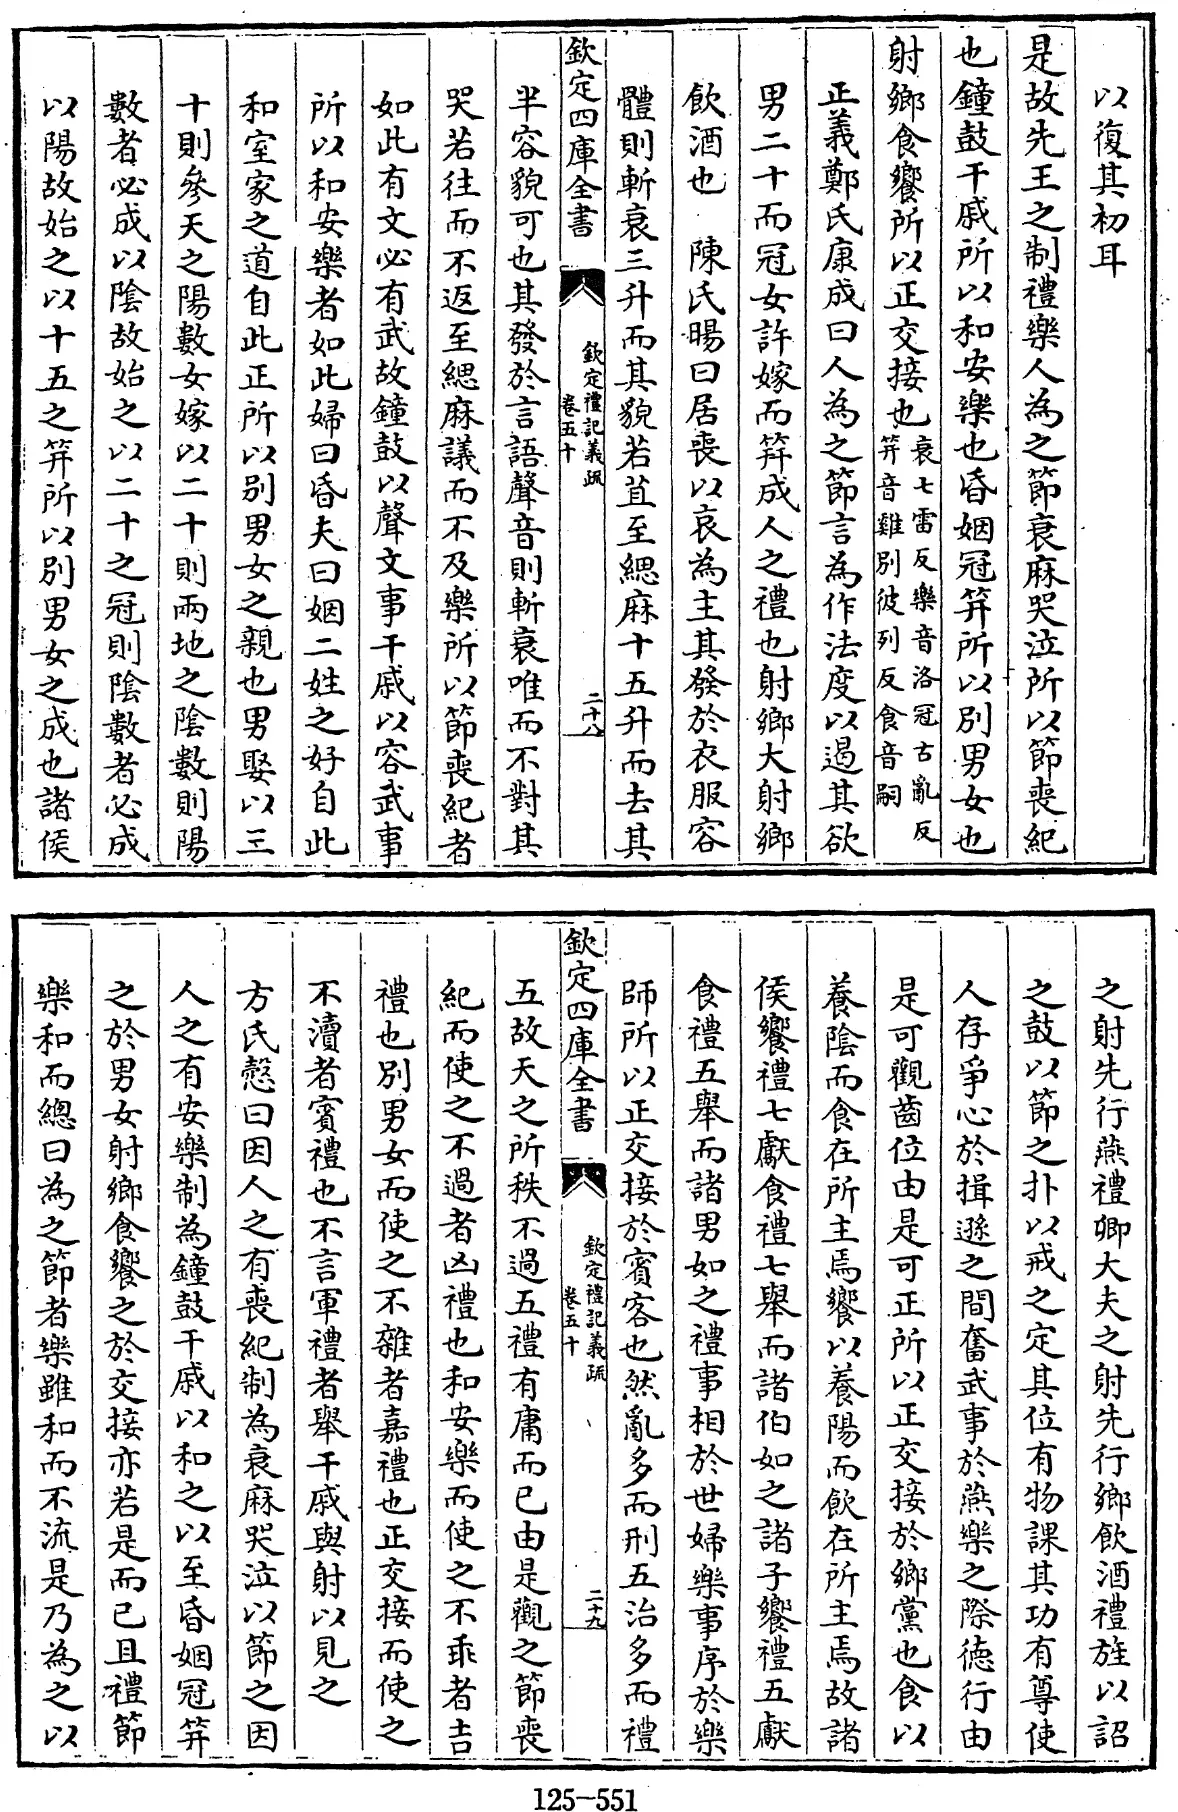 以復其初耳
是故先王之制禮樂人為之節衰麻哭泣所以節喪紀
也鐘鼓干戚所以和安樂也昏姻冠笄所以別男女也
射鄉食饗所以正交接也衰七雷反樂音洛冠古亂反
笄音雞別彼列反食音嗣
正義鄭氏康成曰人為之節言為作法度以遏其欲
男二十而冠女許嫁而笄成人之禮也射鄉大射鄉
飲酒也 陳氏暘曰居喪以哀為主其發於衣服容
體則斬衰三升而其貌若苴至緦麻十五升而去其
欽定四庫全書
欽定禮記義疏
卷五十
二十八
半容貌可也其發於言語聲音則斬衰唯而不對其
哭若往而不返至緦麻議而不及樂所以節喪紀者
如此有文必有武故鐘鼓以聲文事干戚以容武事
所以和安樂者如此婦曰昏夫曰姻二姓之好自此
和室家之道自此正所以別男女之親也男娶以三
十則參天之陽數女嫁以二十則兩地之陰數則陽
數者必成以陰故始之以二十之冠則陰數者必成
以陽故始之以十五之笄所以別男女之成也諸侯
之射先行燕禮卿大夫之射先行鄉飲酒禮旌以詔
之鼓以節之扑以戒之定其位有物課其功有尊使
人存爭心於揖遜之間奮武事於燕樂之際德行由
是可觀齒位由是可正所以正交接於鄉黨也食以
養陰而食在所主焉饗以養陽而飲在所主焉故諸
侯饗禮七獻食禮七舉而諸伯如之諸子饗禮五獻
食禮五舉而諸男如之禮事相於世婦樂事序於樂
師所以正交接於賓客也然亂多而刑五治多而禮
欽定四庫全書
欽定禮記義疏
卷五十
二十九
五故天之所秩不過五禮有庸而已由是觀之節喪
紀而使之不過者凶禮也和安樂而使之不乖者吉
禮也別男女而使之不雜者嘉禮也正交接而使之
不瀆者賓禮也不言軍禮者舉干戚與射以見之
方氏慤曰因人之有喪紀制為衰麻哭泣以節之因
人之有安樂制為鐘鼓干戚以和之以至昏姻冠笄
之於男女射鄉食饗之於交接亦若是而已且禮節
樂和而總曰為之節者樂雖和而不流是乃為之以
125-551